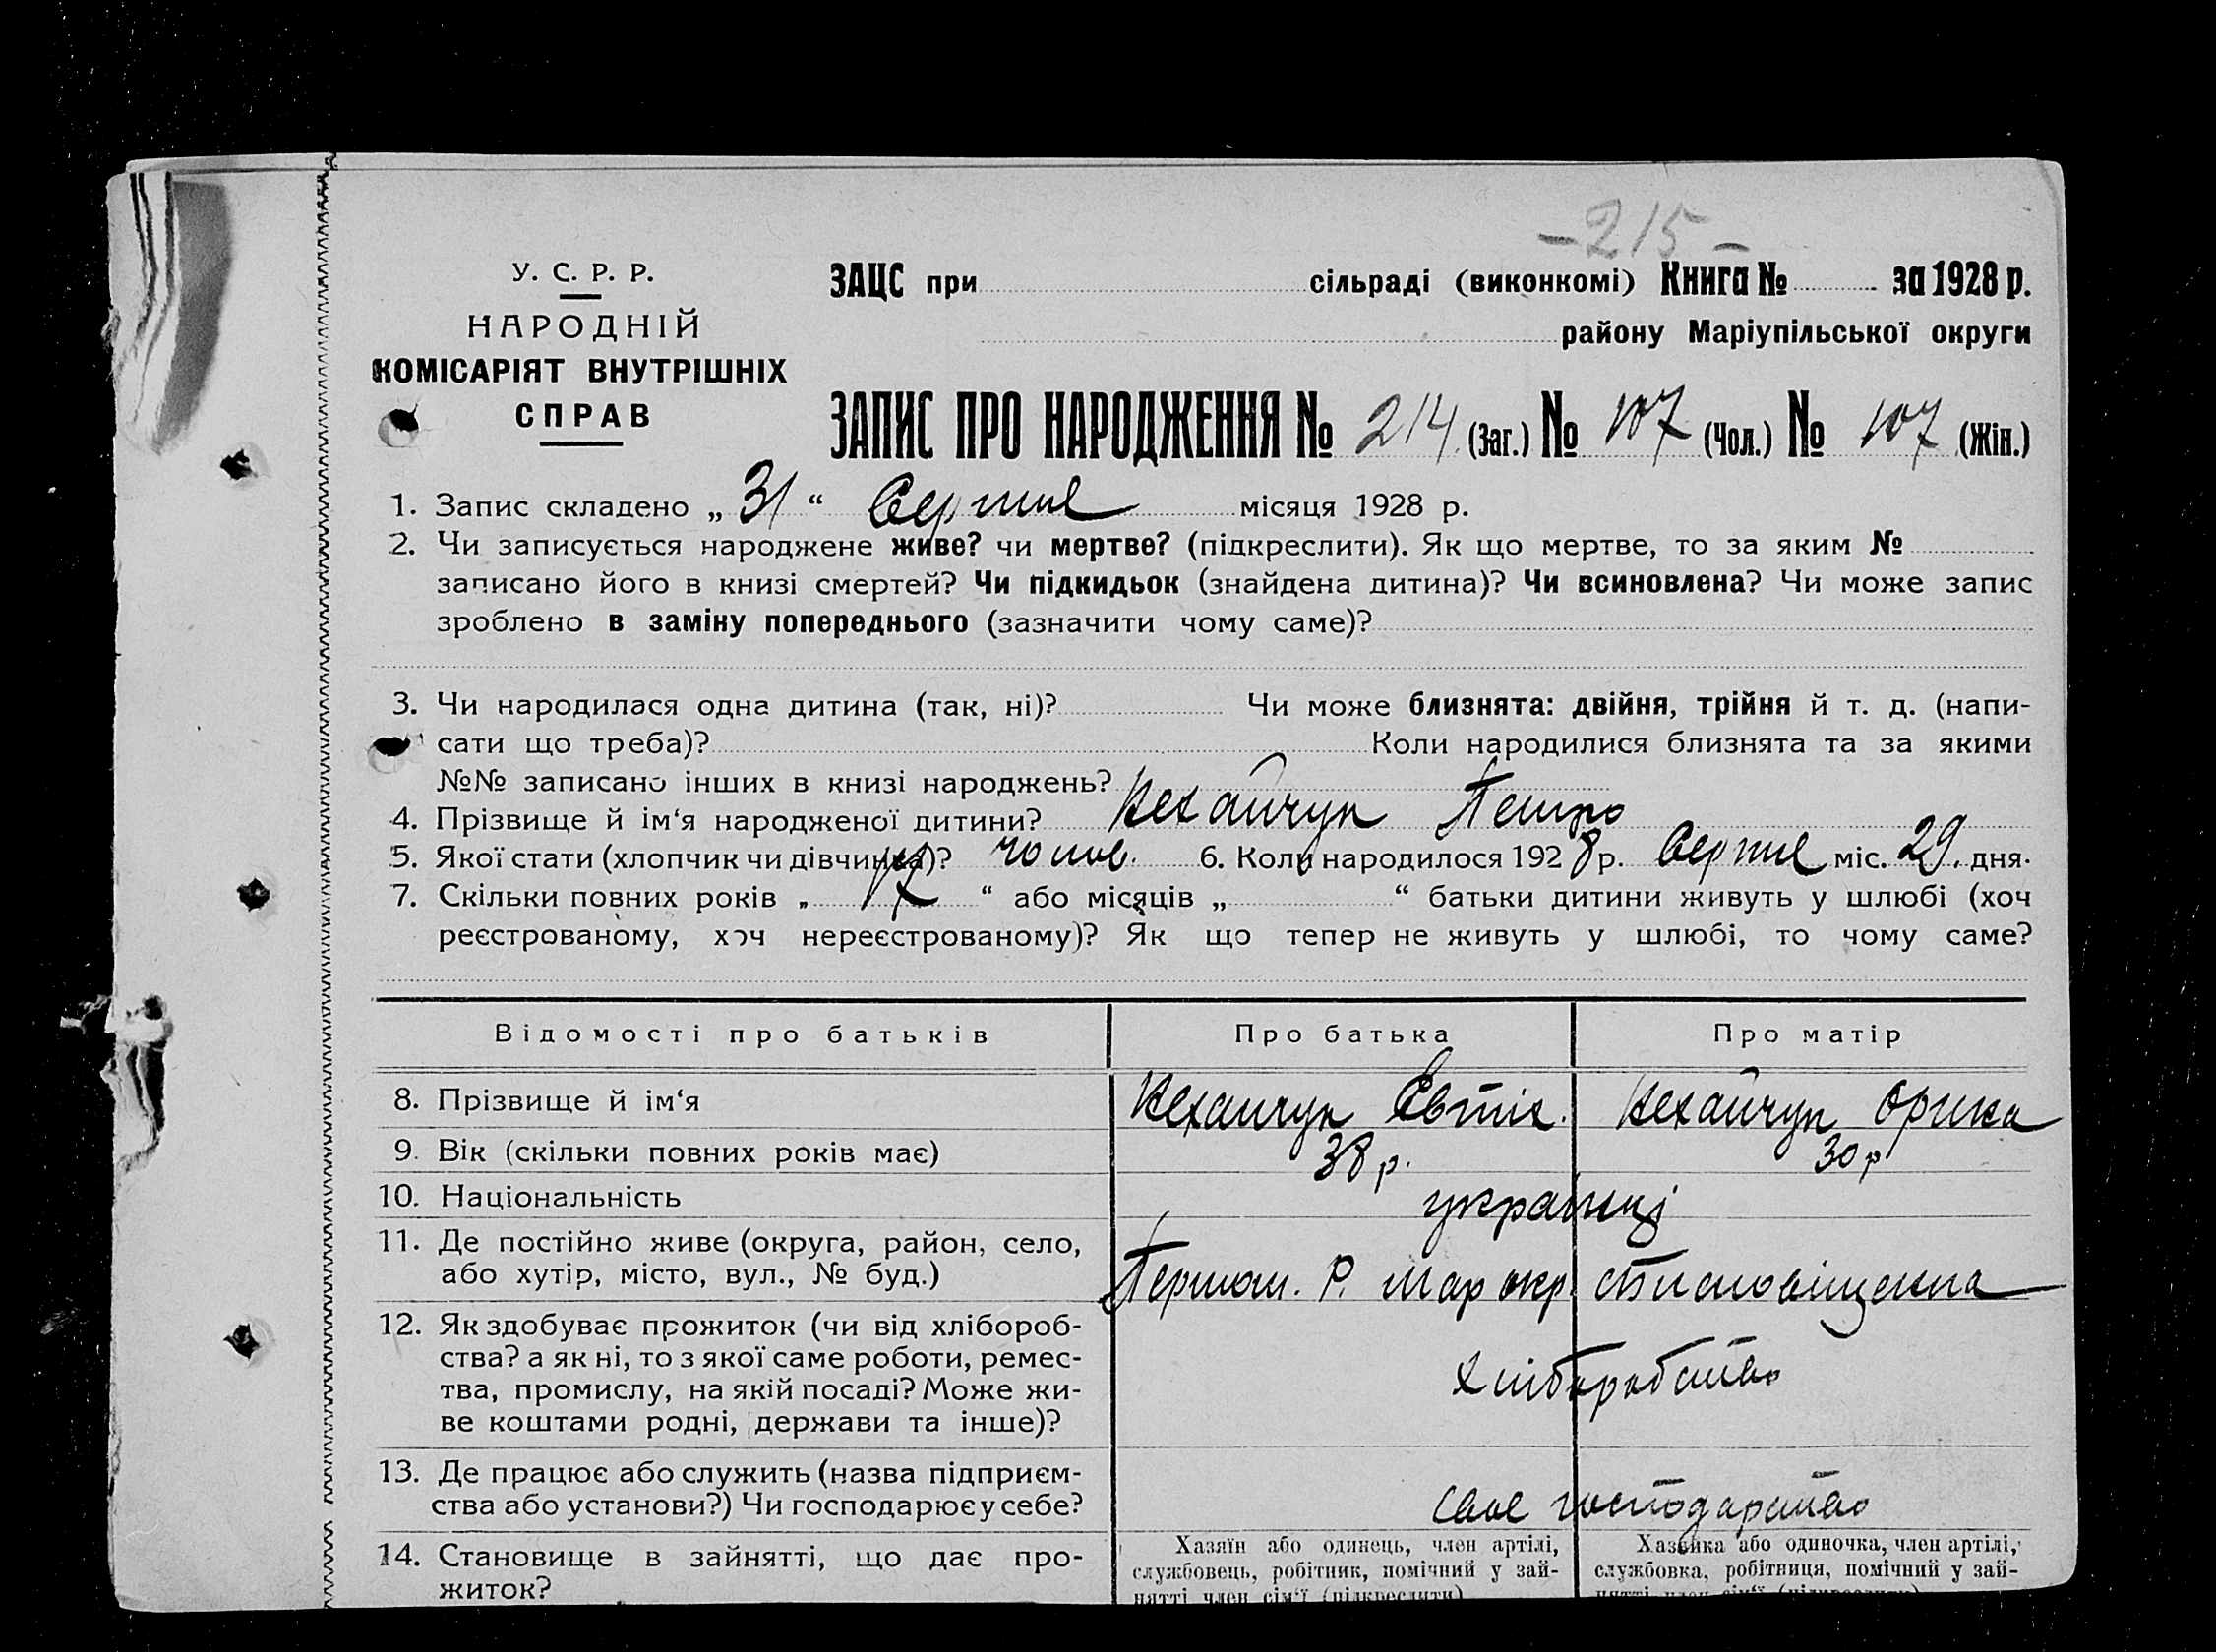 -215-
У. С. Р. Р.
НАРОДНІЙ
КОМІСАРІЯТ ВНУТРІШНІХ
СПРАВ
ЗАЦС при сільраді (виконкомі) Книга № за 1928 р.
району Маріупільської округи
ЗАПИС ПРО НАРОДЖЕННЯ № 214 (Заг.) № 107 (Чол.) № 107 (Жін.)
1. Запис складено „ 31 “ Серпня місяця 1928 р.
2. Чи записується народжене живе? чи мертве? (підкреслити). Як що мертве, то за яким №
записано його в книзі смертей? Чи підкидьок (знайдена дитина)? Чи всиновлена? Чи може запис
зроблено в заміну попереднього (зазначити чому саме)?
3. Чи народилася одна дитина (так, ні)? Чи може близнята: двійня, трійня й т. д. (напи-
сати що треба)? Коли народилися близнята та за якими
№№ записано інших в книзі народжень?
4. Прізвище й ім‘я народженої дитини? Нехайчук Петро
5. Якої стати (хлопчик чи дівчинка)? чолов. 6. Коли народилося 1928 р. Серпня міс. 29. дня.
7. Скільки повних років „ 12 “ або місяців „ “ батьки дитини живуть у шлюбі (хоч
реєстрованому, хоч нереєстрованому)? Як що тепер не живуть у шлюбі, то чому саме?
Відомості про батьків Про батька Про матір
8. Прізвище й ім‘я Нехайчук Євтіх. Нехайчук Орина
9. Вік (скільки повних років має) 38 р. 30 р
10. Національність українці
11. Де постійно живе (округа, район, село,
або хутір, місто, вул., № буд.) Першом. Р. Мар окр.
12. Як здобуває прожиток (чи від хлібороб-
ства? а як ні, то з якої саме роботи, ремес-
тва, промислу, на якій посаді? Може жи-
ве коштами родні, держави та інше)?
Хліборобство
13. Де працює або служить (назва підприєм-
ства або установи?) Чи господарює у себе?
своє господарство
14. Становище в зайнятті, що дає про-
житок?
Хазяїн або одинець, член артілі,
службовець, робітник, помічний у зай-
нятті член сім‘ї (підкреслити)
Хазяйка або одиночка, член артілі,
службовка, робітниця, помічний у зай-
нятті член сім‘ї (підкреслити)